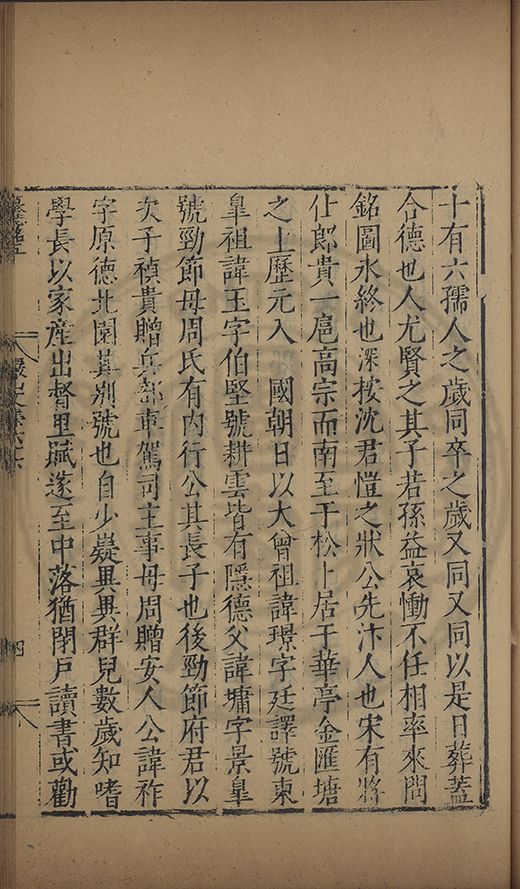 十有六孺人之歲同卒之歲又同又同以是日葬蓋
合德也人尤賢之其子若孫益哀慟不任相率來問
銘圖永終也深按沈君愷之狀公先汴人也宋有將
仕郎貴一扈高宗而南至于松卜居于華亭金匯塘
之上歷元入　國朝日以大曾祖諱璟字廷譯號東
皐祖諱玉字伯堅號耕雲皆有隱德父諱墉字景皐
號勁節母周氏有內行公其長子也後勁節府君以
次子禎貴贈兵部車駕司主事母周贈安人公諱祚
字原德北園其別號也自少嶷異異群兒數歲知嗜
學長以家産出督里賦遂至中落猶閉戸讀書或勸
四